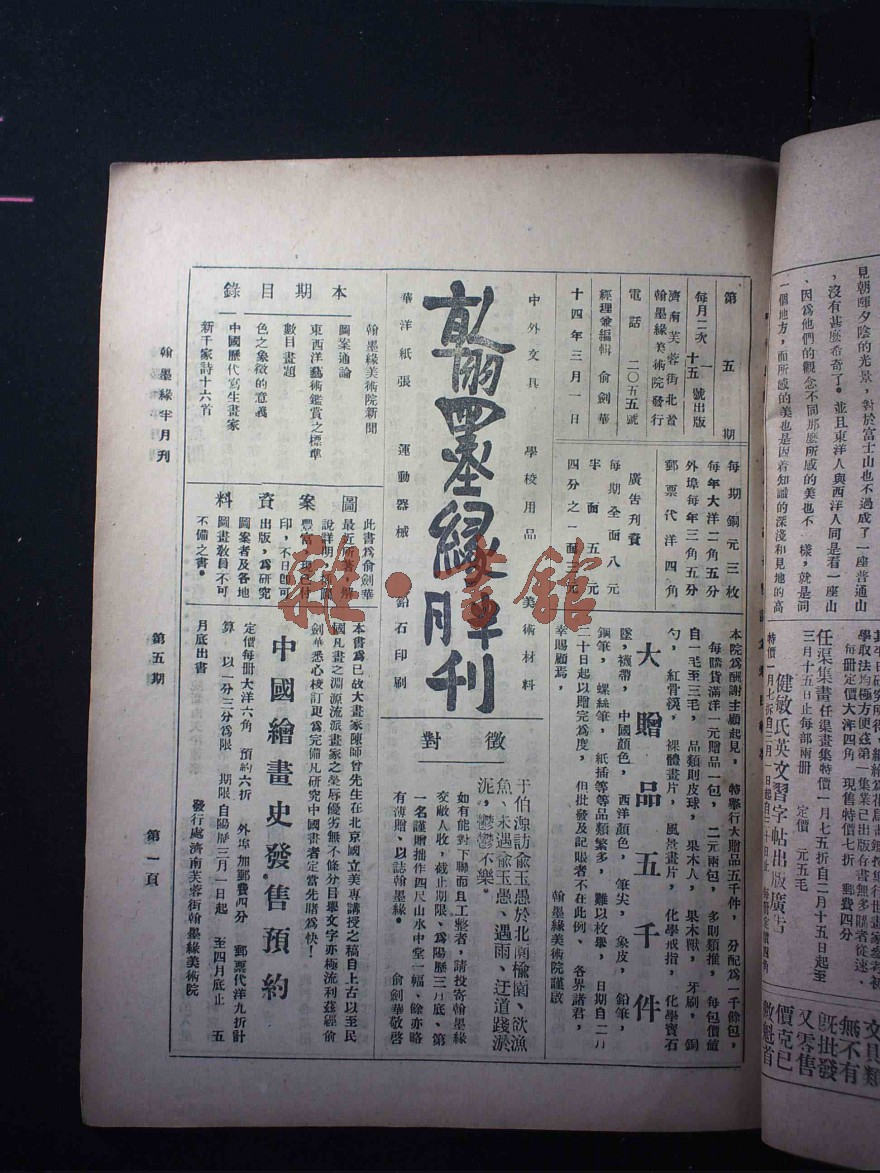 第五期
每月 一 十五 號出版
二次
濟南芙蓉街北首
翰墨緣美術院發行
電話 二〇五五號
經理兼編輯 俞劍華
十四年三月一日
每期銅元三枚
每年大洋二角五分
外埠每年三角五分
郵票代洋四角
廣告刊費
每期全面八元
半面五元
四分之一面三元
大贈品五千件
本院爲酬謝主顧起見，特舉行大贈品五千件，分配爲一千餘包，
每購貨滿洋一元贈品一包，二元兩包，多則類推，每包價值
自一毛至三毛，品類則皮球，果木人，果木獸，牙刷，銅
勺，紅骨漢，裸體畫片，風景畫片，化學戒指，化學寶石
墜，襪帶，中國顏色，西洋顏色，筆尖，象皮，鉛筆，
鋼筆，螺絲筆，紙插等等品類繁多，難以枚舉，日期自二月
二十日起以贈完爲度，但批發及記賬者不在此例、各界諸君，
幸賜顧焉，
翰墨緣美術院謹啟
中外文具 學校用品 美術材料
翰墨緣半月刊
華洋紙張 運動器械 鉛石印刷
徵對
于伯源訪俞玉愚於北園楡園、欲漁
魚、未遇俞玉愚、遇雨、迂道踐淤
泥，鬱鬱不樂。
如有能對下聯而且工整者，請投寄翰墨緣
交敝人收，截止期限、爲陽歷三月底、第
一名謹贈拙作四尺山水中堂一幅、餘亦略
有薄贈、以誌翰墨緣。
俞劍華敬啓
本期目錄
翰墨緣美術院新聞
圖案通論
東西洋藝術鑑賞之標準
數目畫題
色之象徵的意義
中國歷代寫生畫家
新千家詩十六首
圖案資料
此書爲俞劍華
最近所著，解
說詳明，
豐富，現已付
印，不日卽可
出版，爲研究
圖案者及各地
圖畫敎員不可
不備之書。
中國繪畫史發售預約
本書爲已故大畫家陳師曾先生在北京國立美專講授之稿自上古以至民
國凡畫之淵源流派畫家之榮辱優劣無不條分目舉文字亦極流利茲經俞
劍華悉心校訂更爲完備凡研究中國畫者定當先睹爲快！
定價每冊大洋六角 預約六折 外埠加郵費四分 郵票代洋九折計
算 以一分三分爲限 期限自陽歷三月一日起 至四月底止 五
月底出書
發行處濟南芙蓉街翰墨緣美術院
翰墨緣半月刊 第五期 第一頁
雜·書館
見朝暉夕陰的光景，對於富士山也不過成了一座普通山
，沒有甚麽希奇了。並且東洋人與西洋人同是看一座山
、因爲他們的觀念不同那麽所感的美也不一樣，就是同
一個地方，而所感的美也是因着知識的深淺和見地的高
學取法均極方便茲第一集業已出版存書無多購者從速、
每冊定價大洋四角 現售特價七折 郵費四分
任渠集畫 任渠畫集特價一月七五折自二月十五日起至
三月十五日止每部兩冊 定價 元五毛
健敏氏英文習字帖出版廣告
文具類
無不有
旣批發
又零售
價克己